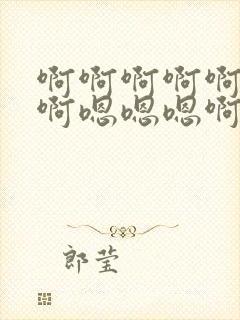 啊啊啊啊啊
啊嗯嗯嗯啊
郎莹